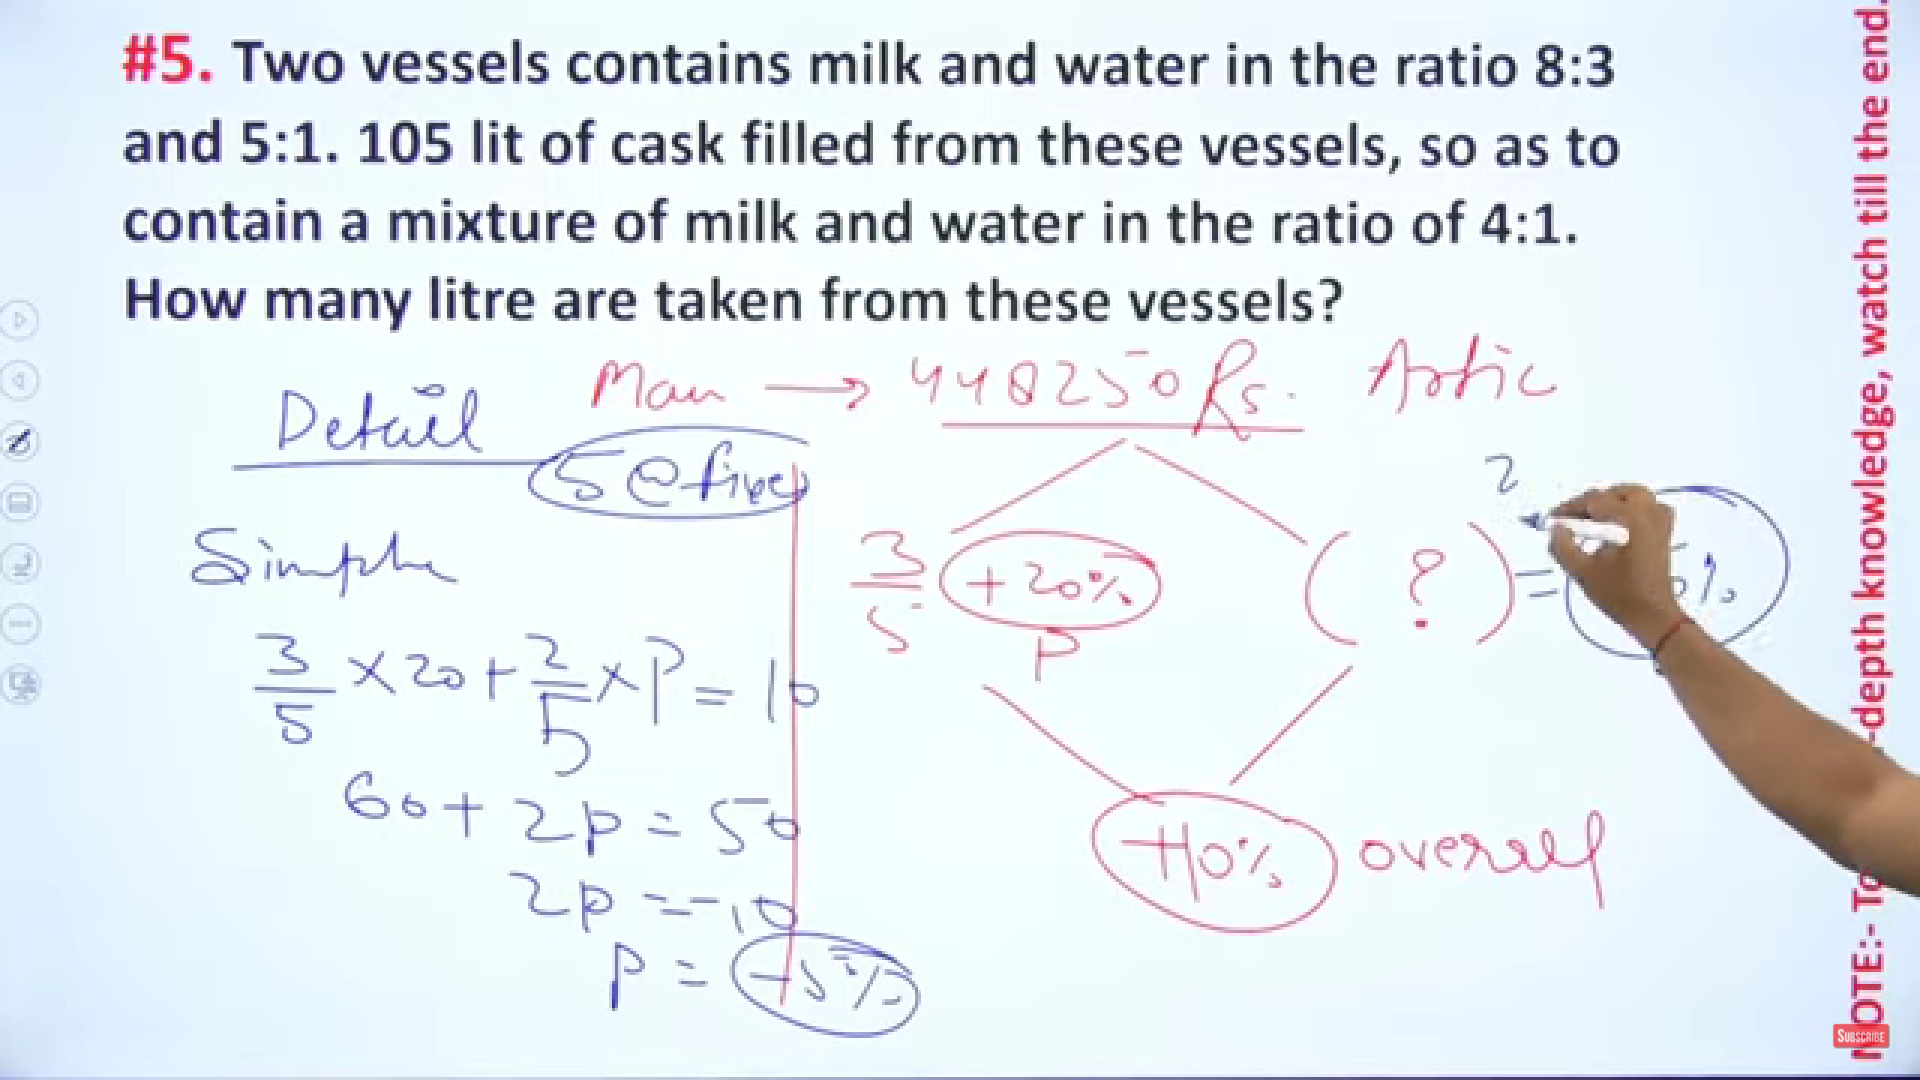 #5. Two vessels contains milk and water in the ratio 8:3
and 5:1. 105 lit of cask filled from these vessels, so as to
contain a mixture of milk and water in the ratio of 4:1.
How many litre are taken from these vessels?
Detail
Man → 448250 Rs.
5 @ five
Simple
3/5 × 20 + 2/5 × P = 10
60 + 2p = 50
2p = -10
p = -5%
3/5 +20%
P
( ? ) =
2
%
+10% overall
NOTE:- To -depth knowledge, watch till the end.
SUBSCRIBE